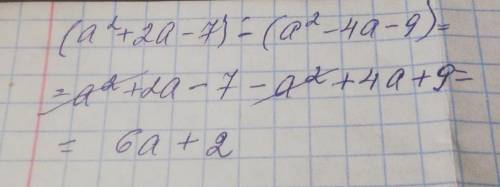 (a²+2a-7)-(a²-4a-9)=
=a²+2a-7-a²+4a+9=
= 6a+2